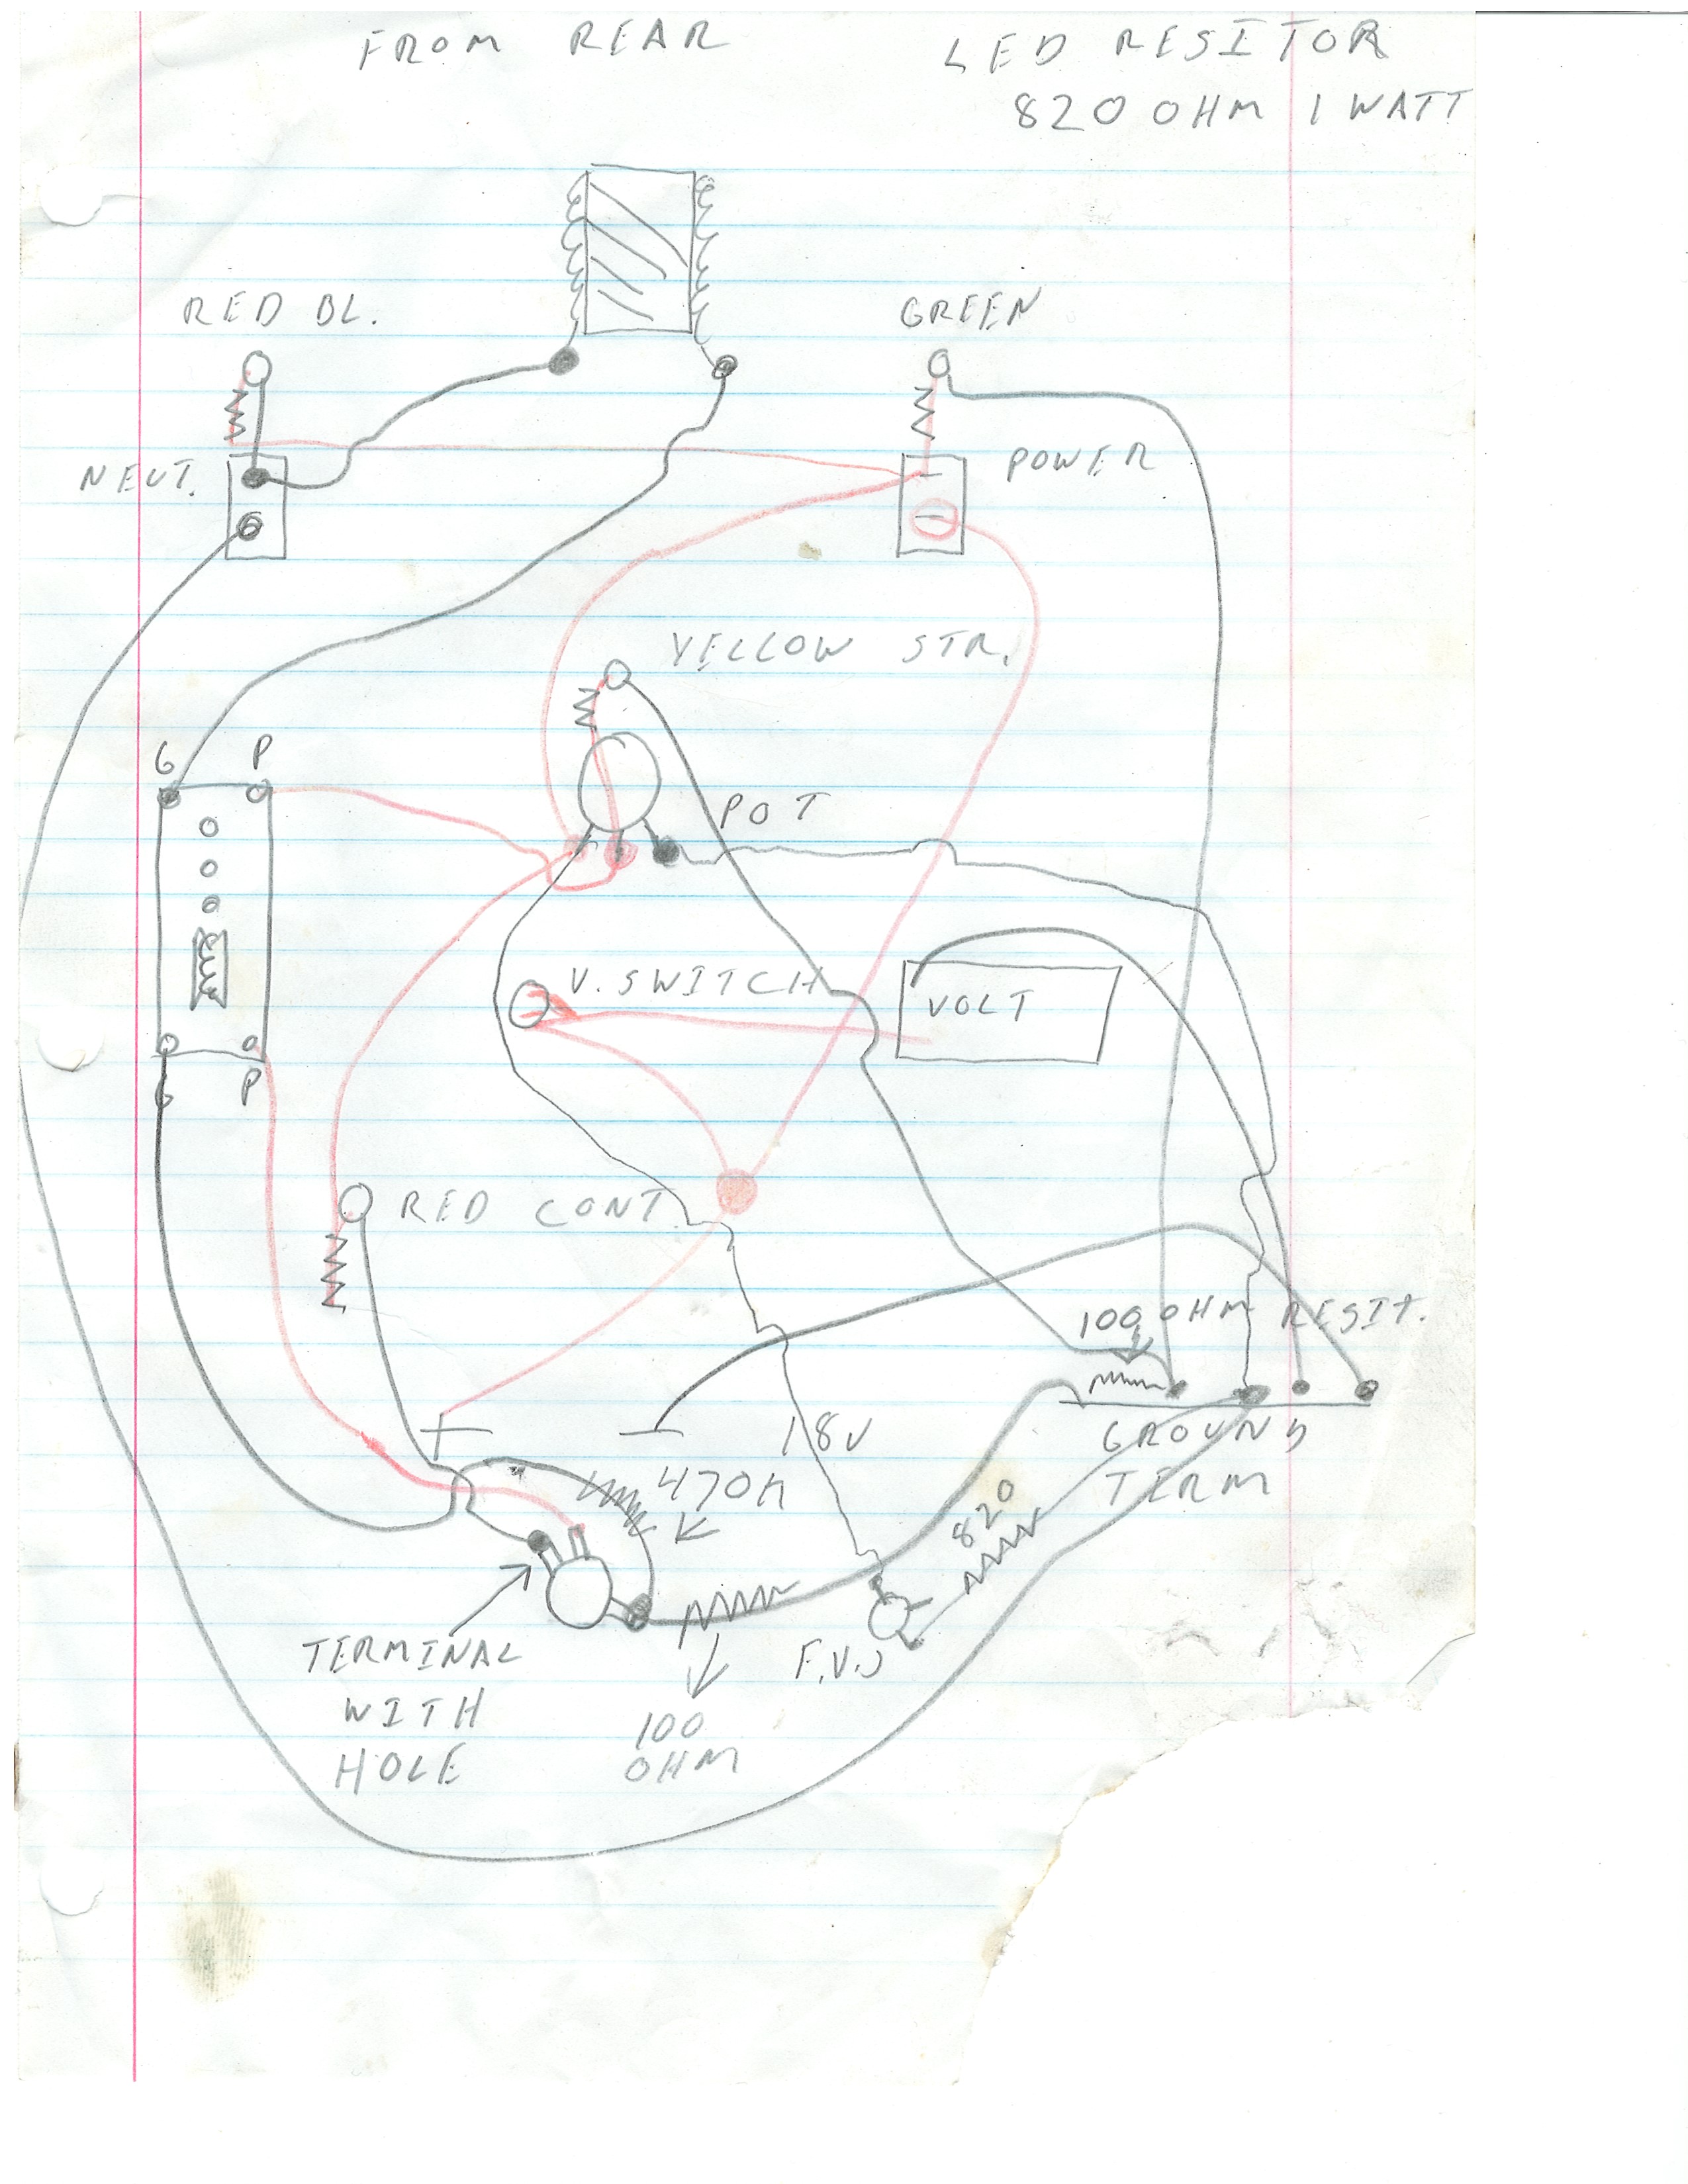 FROM REAR
LED RESITOR
820 OHM 1 WATT
RED BL.
GREEN
NEUT.
POWER
YELLOW STR.
G P
POT
V. SWITCH
VOLT
G P
RED CONT
100 OHM RESIT.
+
-
18V
GROUND
TERM
470K
820
TERMINAL
WITH
HOLE
100
OHM